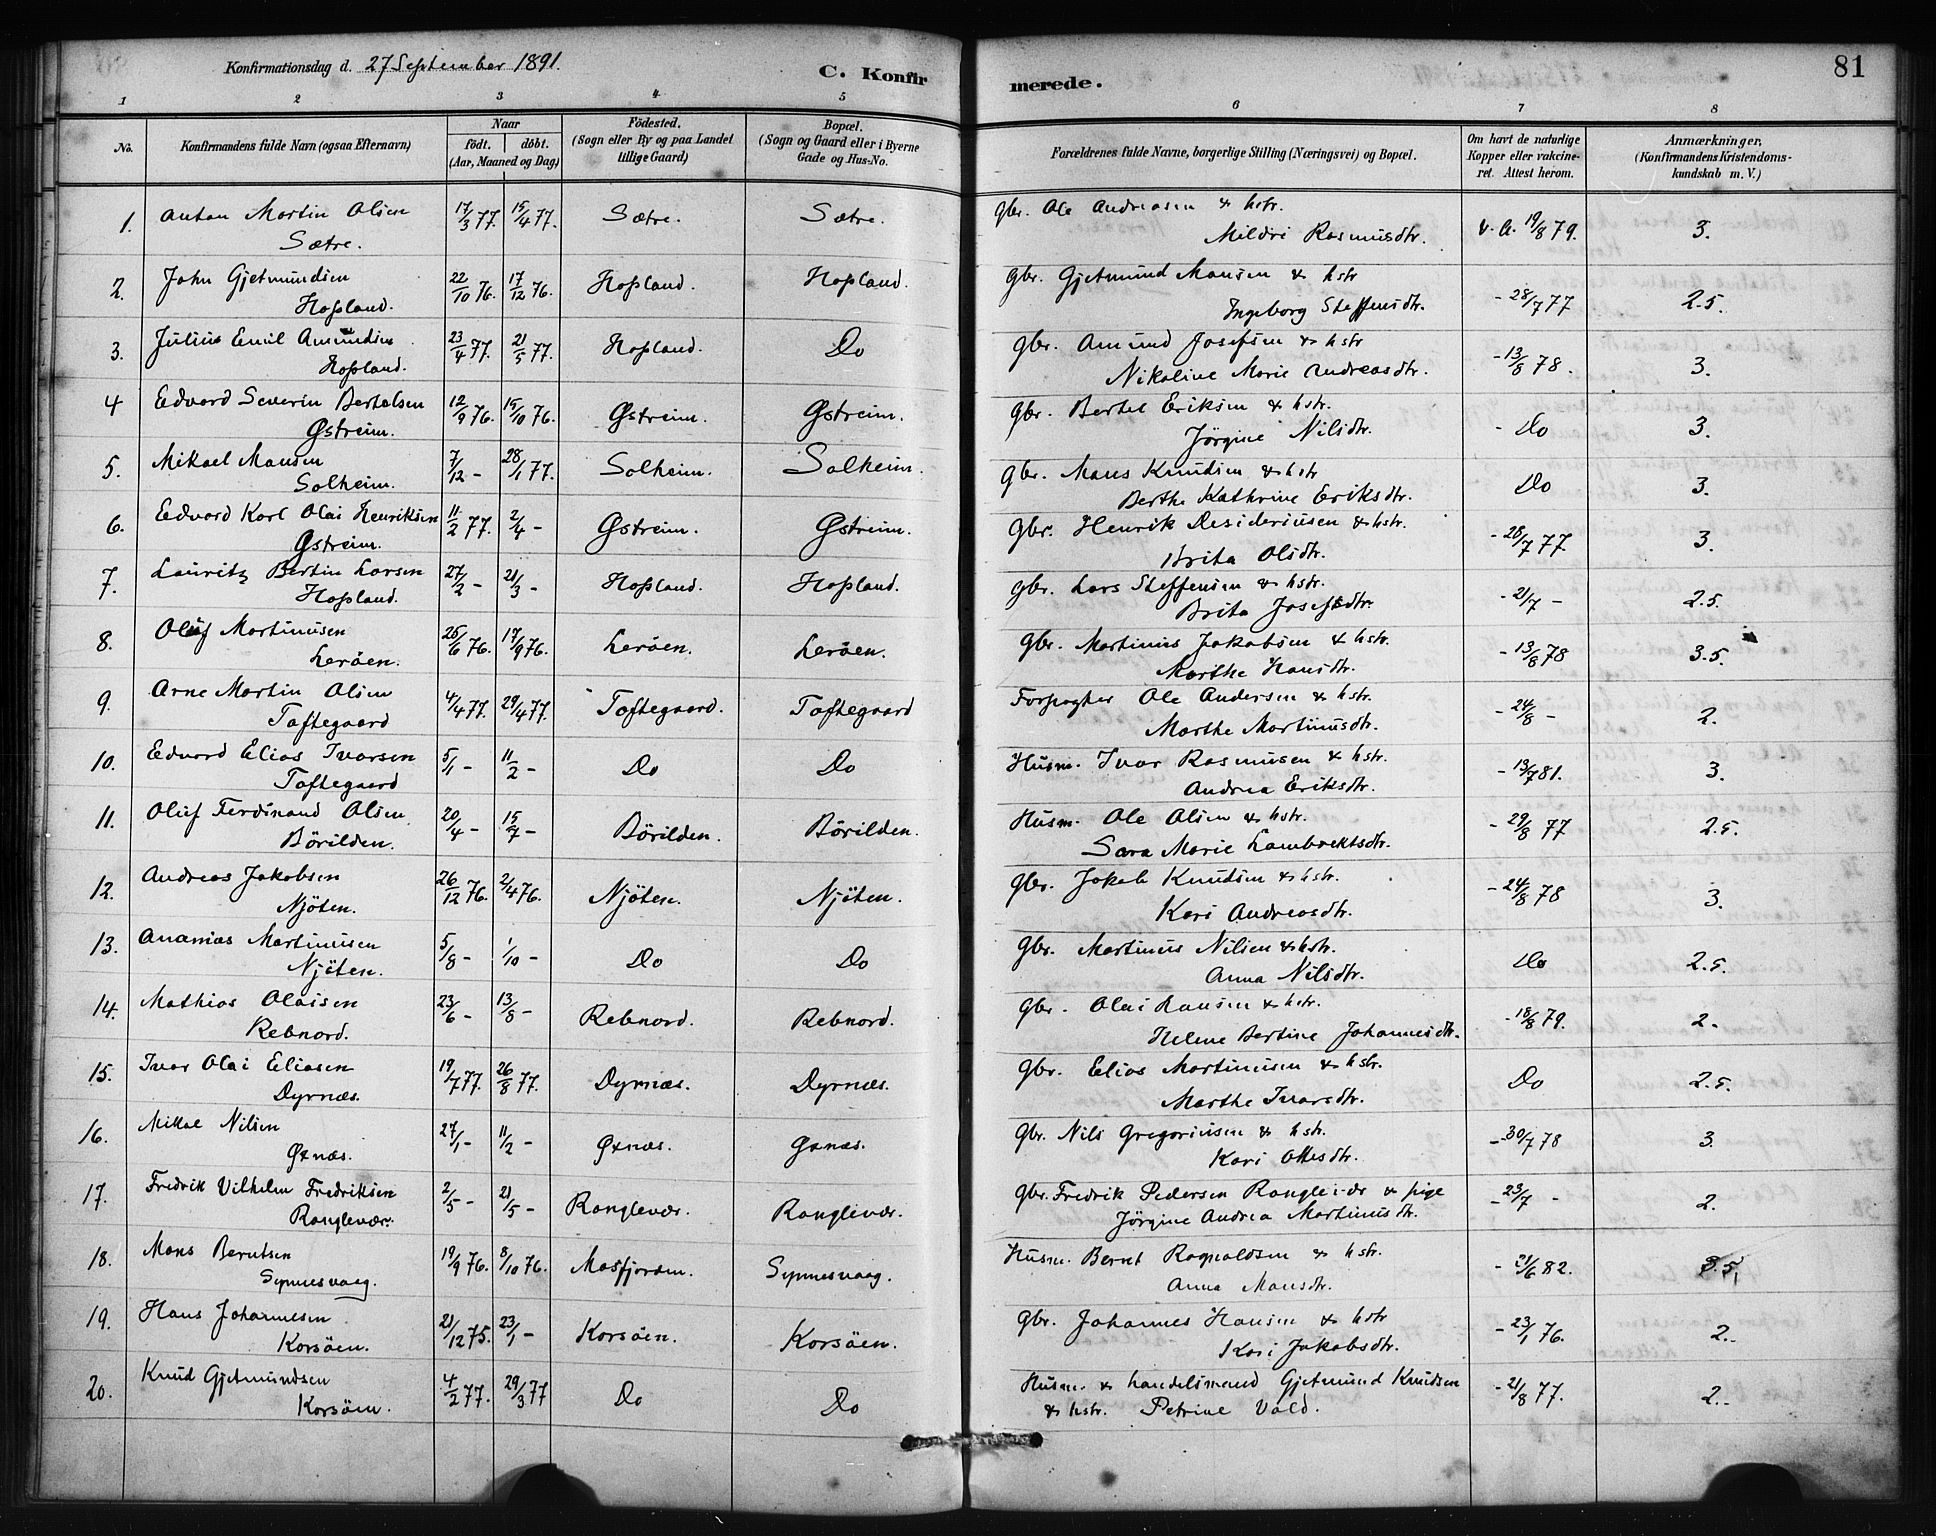 Konfirmationsdag d. 27 September 1891.
C. Konfirmerede.
81
1 2 3 4 5 6 7 8
No.
Konfirmandens fulde Navn (ogsaa Efternavn)
Naar
født. døbt.
(Aar, Maaned og Dag)
Fødested.
(Sogn eller By og paa Landet
tillige Gaard)
Bopæl.
(Sogn og Gaard eller i Byerne
Gade og Hus-No.
Forældrenes fulde Navne, borgerlige Stilling (Næringsvei) og Bopæl.
Om havt de naturlige
Kopper eller vakcine-
ret. Attest herom.
Anmærkninger,
(Konfirmandens Kristendoms-
kundskab m. V.)
1. Anton Martin Olsen 17/3 77. 15/4 77. Sætre. Sætre. Gbr. Ole Andreasen & hstr. v. a. 19/8 79. 3.
Sætre. Mildri Rasmusdtr.
2. John Gjetmundsen 22/10 76. 17/12 76. Hopland. Hopland. Gbr. Gjetmund Monsen & hstr - 28/7 77 2.5.
Hopland. Ingeborg Steffensdtr.
3. Julius Emil Amundsen 23/4 77. 21/5 77. Hopland. Do Gbr. Amund Josefsen & hstr - 13/8 78. 3.
Hopland. Nikoline Marie Andreasdtr.
4 Edvard Severin Bertelsen 12/9 76. 15/10 76. Østreim. Østreim. Gbr. Bertel Eriksen & hstr. - Do 3.
Østreim. Jörgine Nilsdtr.
5. Mikael Mansen 7/12 - 28/1 77. Solheim. Solheim. Gbr. Mans Knudsen & hstr Do 3.
Solheim. Berthe Kathrine Eriksdtr.
6. Edvard Karl Olai Henriksen 11/2 77. 2/4 - Østreim. Østreim. Gbr. Henrik Desideriusen & hstr. - 28/7 77. 3.
Østreim. Brita Olsdtr.
7. Lauritz Bertin Larsen 27/2 - 21/3 - Hopland. Hopland. Gbr. Lars Steffensen & hstr. - 21/7 - 2.5.
Hopland. Brita Josefsdtr.
8. Oluf Martinusen 25/6 76. 17/9 76. Leröen. Leröen. Gbr. Martinus Jakobsen & hstr. - 13/8 78 3.5.
Leröen. Marthe Hansdtr.
9. Arne Martin Olsen 4/4 77. 29/4 77. Toftegaard. Toftegaard Forpagter Ole Andersen & hstr. - 24/8 - 2.
Toftegaard Marthe Martinusdtr.
10. Edvard Elias Ivarsen 5/1 - 11/2 - Do Do Husm. Ivar Rasmusen & hstr. - 13/7 81. 3.
Toftegaard Andrea Eriksdtr.
11. Oluf Ferdinand Olsen 20/4 - 15/7 - Börilden. Börilden. Husm. Ole Olsen & hstr. - 29/8 77 2.5.
Börilden. Sara Marie Lambrektsdtr.
12. Andreas Jakobsen 26/12 76. 2/4 76. Njöten. Njöten. Gbr. Jakob Knudsen & hstr. - 24/8 78 3.
Njöten. Kari Andreasdtr.
13. Ananias Martinusen 5/8 - 1/10 - Do Do Gbr. Martinus Nilsen & hstr. Do 2.5.
Njöten. Anna Nilsdtr.
14. Mathias Olaisen 23/6 - 13/8 - Rebnord. Rebnord. Gbr. Olai Hansen & hstr. - 18/8 79. 2.
Rebnord. Helene Bertine Johannesdtr.
15. Ivar Olai Eliasen 19/7 77. 26/8 77. Dyrnæs. Dyrnæs. Gbr. Elias Martinusen & hstr. Do 2.5.
Dyrnæs. Marthe Ivarsdtr.
16. Mikal Nilsen 27/1 - 11/2 - Øxnæs. Øxnæs. Gbr. Nils Gregoriusen & hstr. - 30/7 78 3.
Øxnæs. Kari Ottesdtr.
17. Fredrik Vilhelm Fredriksen 2/5 - 21/5 - Ranglevær. Ranglevær. Gbr. Fredrik Pedersen Ranglevær & pige - 23/7 - 2.
Ranglevær. Jörgine Andrea Martinusdtr.
18. Mons Berntsen 19/9 76. 8/10 76. Masfjorden. Synnesvaag. Husm. Bernt Ragnaldsen & hstr. - 21/6 82. 3.5.
Synnesvaag. Anna Monsdtr.
19. Hans Johannesen 21/12 75. 23/1 - Korsöen. Korsöen. Gbr. Johannes Hansen & hstr - 23/1 76. 2.
Korsöen. Kari Jakobsdtr.
20. Knud Gjetmundsen 4/2 77. 29/3 77 Do Do Husm. & handelsmand Gjetmund Knudsen - 21/8 77. 2.
Korsöen. & hstr. Petrine Vold.